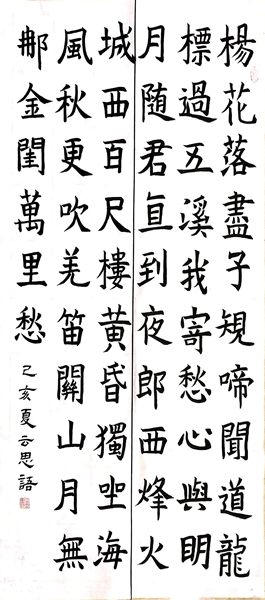 楊花落盡子規啼聞道龍
標過五溪我寄愁心與明
月随君直到夜郎西烽火
城西百尺樓黃昏獨坐海
風秋更吹羌笛關山月無
郍金閨萬里愁
己亥夏云思語